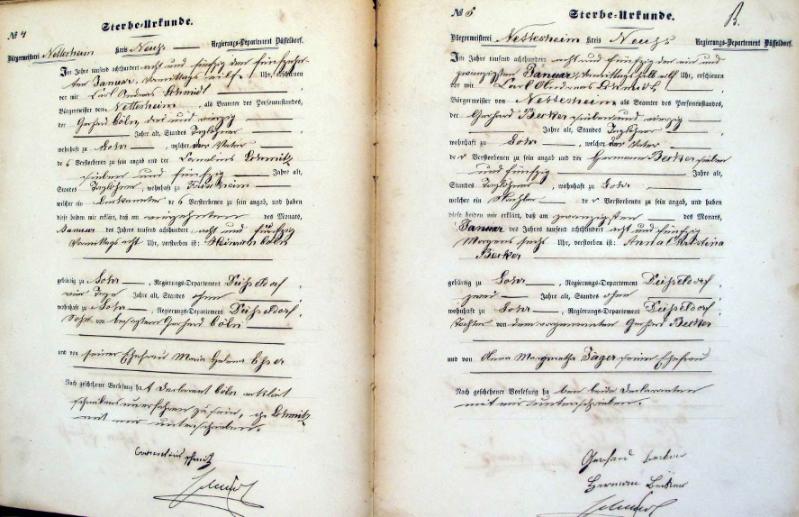 № 4
Sterbe-Urkunde.
Bürgermeisterei Nettesheim Kreis Neuß Regierungs-Departement Düsseldorf.
Im Jahre tausend achthundert acht und fünfzig den
ten Januar, Vormittags Uhr, erschienen
vor mir Carl Andreas Schmidt
Bürgermeister von Nettesheim, als Beamter des Personenstandes,
der Gerhard Cöln, drei und vierzig
Jahre alt, Standes Taglöhner
wohnhaft zu Sohr, welcher der Vater
de s Verstorbenen zu sein angab und der Cornelius Schmitz
sieben und fünfzig Jahre alt,
Standes Taglöhner, wohnhaft zu
welcher ein Bekannter de s Verstorbenen zu sein angab, und haben
diese beiden mir erklärt, daß am neunzehnten des Monats,
Januar des Jahres tausend achthundert acht und fünfzig
Vormittags acht Uhr, verstorben ist: Heinrich Cöln
gebürtig zu Sohr, Regierungs-Departement Düsseldorf
vier Tage Jahre alt, Standes ohne
wohnhaft zu Sohr, Regierungs-Departement Düsseldorf,
Sohn von Gerhard Cöln
und von seiner Ehefrau Maria Helena Esser
Nach geschehener Vorlesung hat Declarant Cöln erklärt
schreibensunerfahren zu sein, Schmitz
mit mir unterschrieben.
Cornelius Schmitz
Schmidt
№ 5
B.
Sterbe-Urkunde.
Bürgermeisterei Nettesheim Kreis Neuß Regierungs-Departement Düsseldorf.
Im Jahre tausend achthundert acht und fünfzig den ein und
zwanzigsten Januar, Vormittags Uhr, erschienen
vor mir Carl Andreas Schmidt
Bürgermeister von Nettesheim als Beamter des Personenstandes,
der Gerhard Becker sieben und vierzig
Jahre alt, Standes Taglöhner
wohnhaft zu Sohr, welcher der Vater
de r Verstorbenen zu sein angab und der Hermann Becker sieben
und fünfzig Jahre alt,
Standes Taglöhner, wohnhaft zu Sohr
welcher ein Nachbar de r Verstorbenen zu sein angab, und haben
diese beiden mir erklärt, daß am zwanzigsten des Monats,
Januar des Jahres tausend achthundert acht und fünfzig
Morgens sechs Uhr, verstorben ist: Anna Christina
Becker
gebürtig zu Sohr, Regierungs-Departement Düsseldorf,
zwei Jahre alt, Standes ohne
wohnhaft zu Sohr, Regierungs-Departement Düsseldorf,
Tochter von dem vorgenannten Gerhard Becker
und von Anna Margaretha Jäger seiner Ehefrau
Nach geschehener Vorlesung haben beide Declaranten
mit mir unterschrieben.
Gerhard Becker
Herman Becker
Schmidt